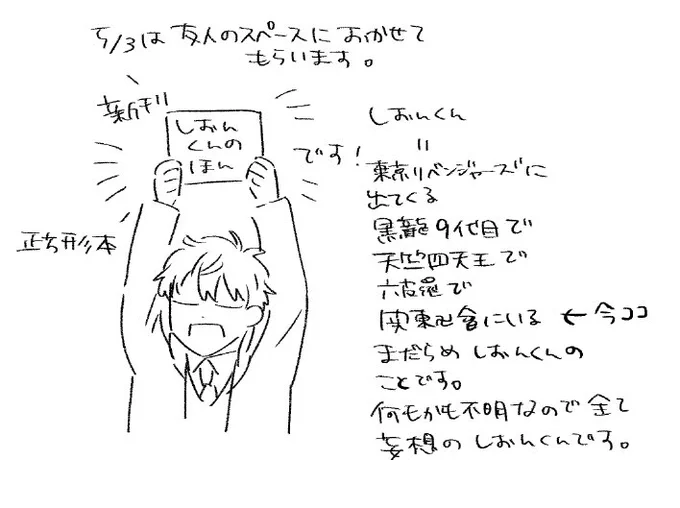 5/3は 友人のスペースに おかせて
もらいます。
新刊
しおん
くんの
ほん
です!
正方形本
しおんくん
=
東京リベンジャーズに
出てくる
黒龍9代目で
天竺四天王で
六波羅で
関東卍會にいる ← 今ココ
まだらめ しおんくんの
ことです。
何もかも不明なので 全て
妄想の しおんくんです。